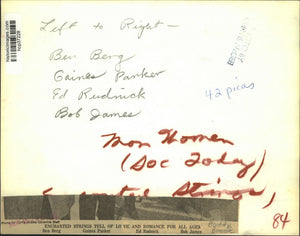 Left to Right —
Ben Berg
Gaines Parker
Ed Rudnick
Bob James
42 picas
Mon Women
(Soc Today)
Strings,
84
ENCHANTED STRINGS TELL OF LOVE AND ROMANCE FOR ALL AGES
Ben Berg Gaines Parker Ed Rudnick Bob James